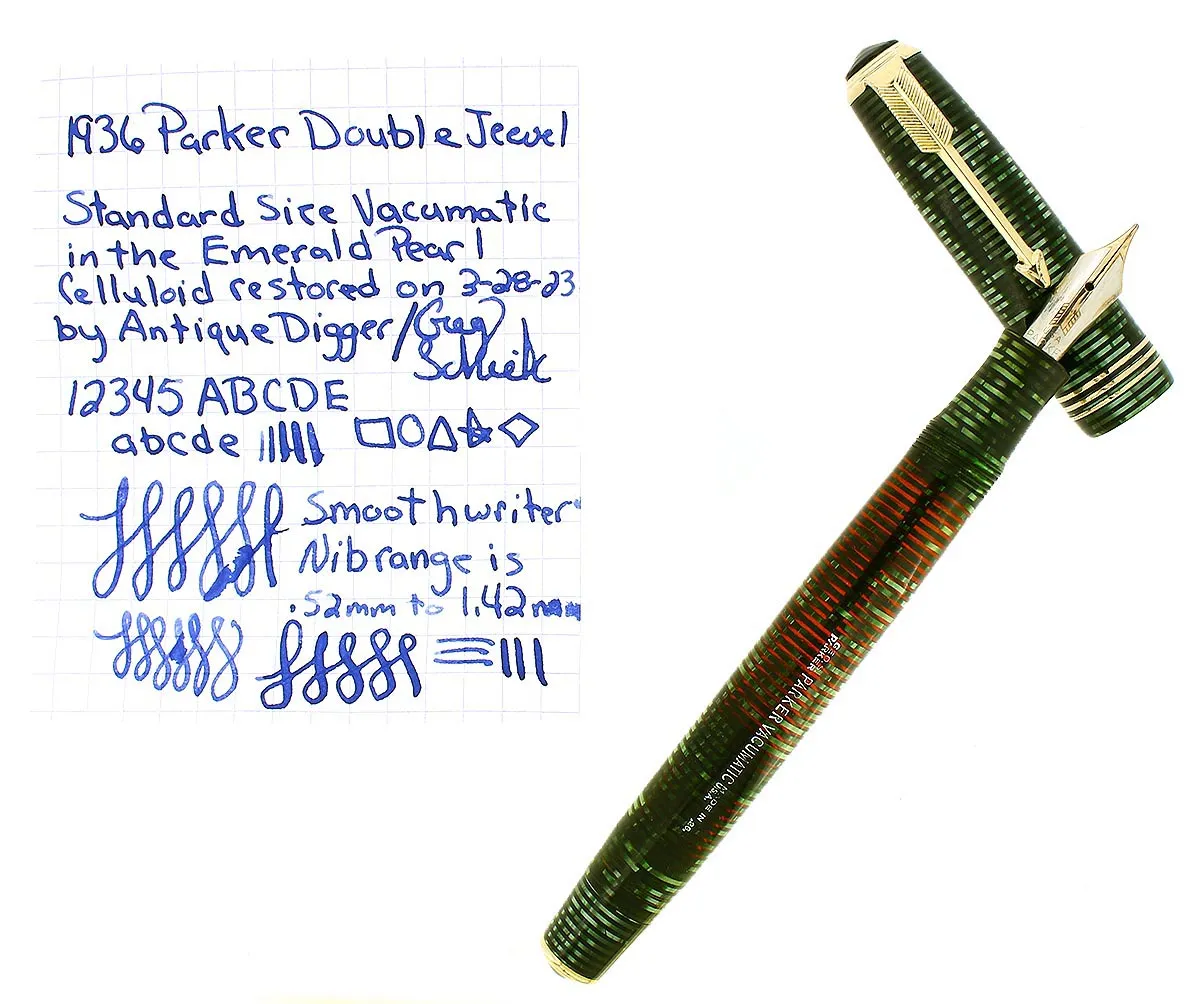 1936 Parker Double Jewel
Standard Size Vacumatic
in the Emerald Pearl
Celluloid restored on 3-28-23
by Antique Digger/Greg
12345 ABCDE
abcde
Smooth writer
Nib range is
.52mm to 1.42mm
PARKER
PARKER VACUMATIC
MADE IN
U.S.A.